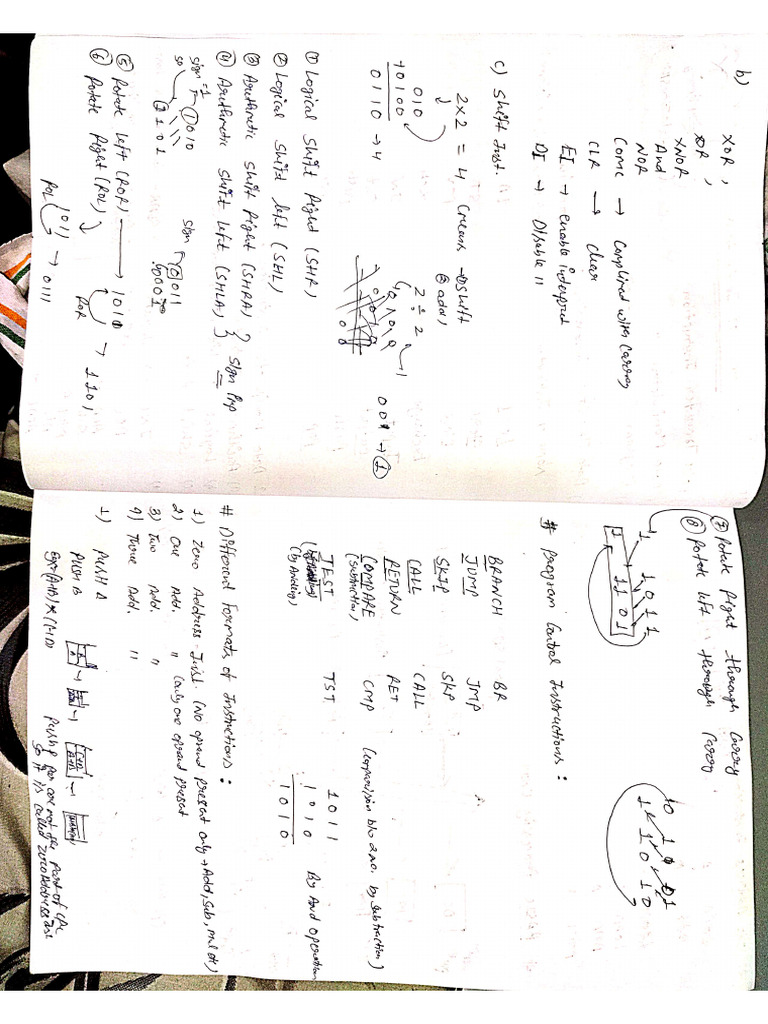 b) XOR,
OR,
XNOR
And
NOR
Comc → Complimed with Carry
CLR → clear
EI → enable Interrupt
DI → Disable "
c) Shift Inst.
2x2 = 4 (means → ① shift
② add)
010
+0100
0110 → 4
2 ÷ 2
001 → ①
① Logical Shift Right (SHR)
② Logical Shift left (SHL)
③ Arithmetic Shift Right (SHRA)
④ Arithmetic Shift left (SHLA)
} Sign Rep
sign = 1
so
①010
1101
Sign
⓪011
0001
⑤ Rotate left (ROR) → 1010 → 1101
ROR
⑥ Rotate Right (ROL)
ROL 1011 → 0111
⑦ Rotate Right thorough Carry
⑧ Rotate left thorough Carry
1 1011
1 1101
1 1 0 1
1 1 0 1 0
# Program Control Instructions :
BRANCH BR
JUMP JMP
SKIP SKP
CALL CALL
RETURN RET
COMPARE CMP (comparision b/w 2 no. by subtraction)
(Subtraction)
TEST TST
(by Anding)
1011
1010
1010
By And operation
# Different Formats of Instructions :
1) Zero Address Inst. (No oprand present only → Add, Sub, mul etc)
2) One Add. " (only one oprand present
3) Two Add. "
4) Three Add. "
1) PUSH A
PUSH B
A
A+B
push & pop are not the part of CPU
So it is called Zero Address Inst